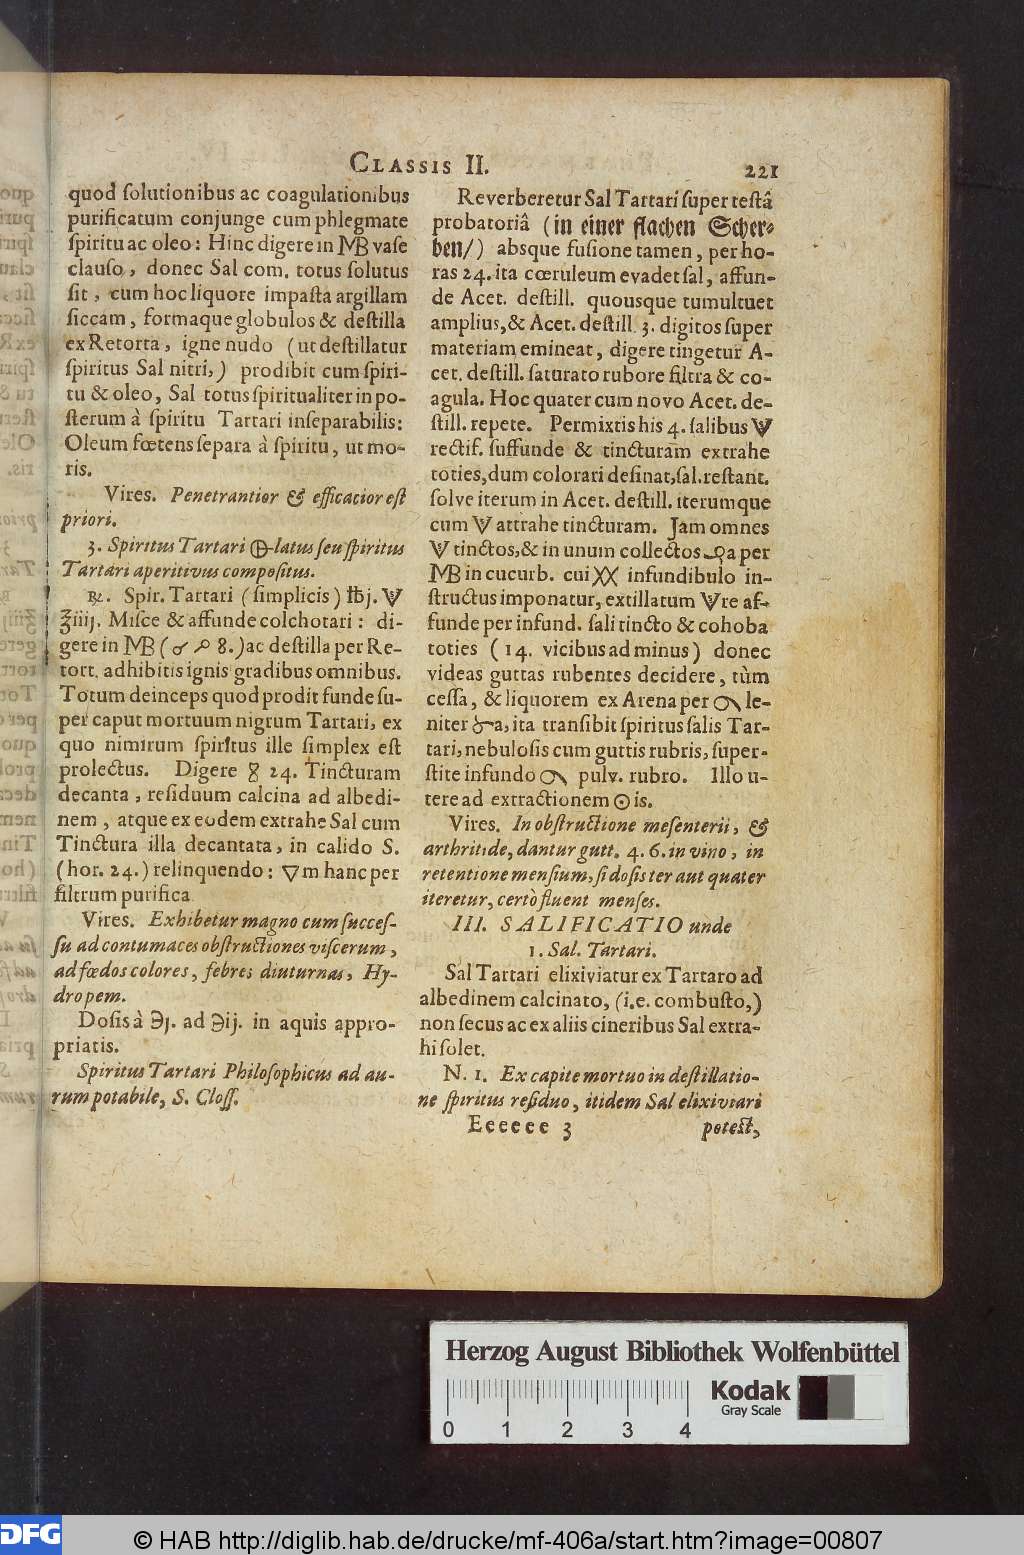 CLASSIS II.
221
quod ſolutionibus ac coagulationibus
purificatum conjunge cum phlegmate
ſpiritu ac oleo: Hinc digere in MB vaſe
clauſo, donec Sal com. totus ſolutus
ſit, cum hoc liquore impaſta argillam
ſiccam, formaque globulos & deſtilla
ex Retorta, igne nudo (ut deſtillatur
ſpiritus Sal nitri,) prodibit cum ſpiri-
tu & oleo, Sal totus ſpiritualiter in po-
ſterum à ſpiritu Tartari inſeparabilis:
Oleum fœtens ſepara à ſpiritu, ut mo-
ris.
Vires. Penetrantior & efficacior eſt
priori.
3. Spiritus Tartari 🜨-latus ſeu ſpiritus
Tartari aperitivus compoſitus.
℞. Spir. Tartari (ſimplicis) ℔j. V
℥iiij. Miſce & affunde colchotari: di-
gere in MB (♂ 8.) ac deſtilla per Re-
tort. adhibitis ignis gradibus omnibus.
Totum deinceps quod prodit funde ſu-
per caput mortuum nigrum Tartari, ex
quo nimirum ſpiritus ille ſimplex eſt
prolectus. Digere 24. Tincturam
decanta, reſiduum calcina ad albedi-
nem, atque ex eodem extrahe Sal cum
Tinctura illa decantata, in calido S.
(hor. 24.) relinquendo: ▽m hanc per
filtrum purifica
Vires. Exhibetur magno cum ſucceſ-
ſu ad contumaces obſtructiones viſcerum,
ad fœdos colores, febres diuturnas, Hy-
dropem.
Doſis à ℈j. ad ℈ij. in aquis appro-
priatis.
Spiritus Tartari Philoſophicus ad au-
rum potabile, S. Cloſſ.
Reverberetur Sal Tartari ſuper teſtâ
probatoriâ (in einer flachen Scher-
ben/) abſque fuſione tamen, per ho-
ras 24. ita cœruleum evadet ſal, affun-
de Acet. deſtill. quousque tumultuet
amplius, & Acet. deſtill. 3. digitos ſuper
materiam emineat, digere tingetur A-
cet. deſtill. ſaturato rubore filtra & co-
agula. Hoc quater cum novo Acet. de-
ſtill. repete. Permixtis his 4. ſalibus V
rectif. ſuffunde & tincturam extrahe
toties, dum colorari deſinat, ſal. reſtant.
ſolve iterum in Acet. deſtill. iterumque
cum V attrahe tincturam. Jam omnes
V tinctos, & in unum collectos a per
MB in cucurb. cui XX infundibulo in-
ſtructus imponatur, extillatum Vre af-
funde per infund. ſali tincto & cohoba
toties (14. vicibus ad minus) donec
videas guttas rubentes decidere, tùm
ceſſa, & liquorem ex Arena per le-
niter a, ita tranſibit ſpiritus ſalis Tar-
tari, nebuloſis cum guttis rubris, ſuper-
ſtite infundo pulv. rubro. Illo u-
tere ad extractionem ☉is.
Vires. In obſtructione meſenterii, &
arthritide, dantur gutt. 4. 6. in vino, in
retentione menſium, ſi doſis ter aut quater
iteretur, certò fluent menſes.
III. SALIFICATIO unde
1. Sal. Tartari.
Sal Tartari elixiviatur ex Tartaro ad
albedinem calcinato, (i.e. combuſto,)
non ſecus ac ex aliis cineribus Sal extra-
hi ſolet.
N. 1. Ex capite mortuo in deſtillatio-
ne ſpiritus reſiduo, itidem Sal elixiviari
Eeeeee 3
poteſt,
Herzog August Bibliothek Wolfenbüttel
Kodak
Gray Scale
0 1 2 3 4
DFG
© HAB http://diglib.hab.de/drucke/mf-406a/start.htm?image=00807